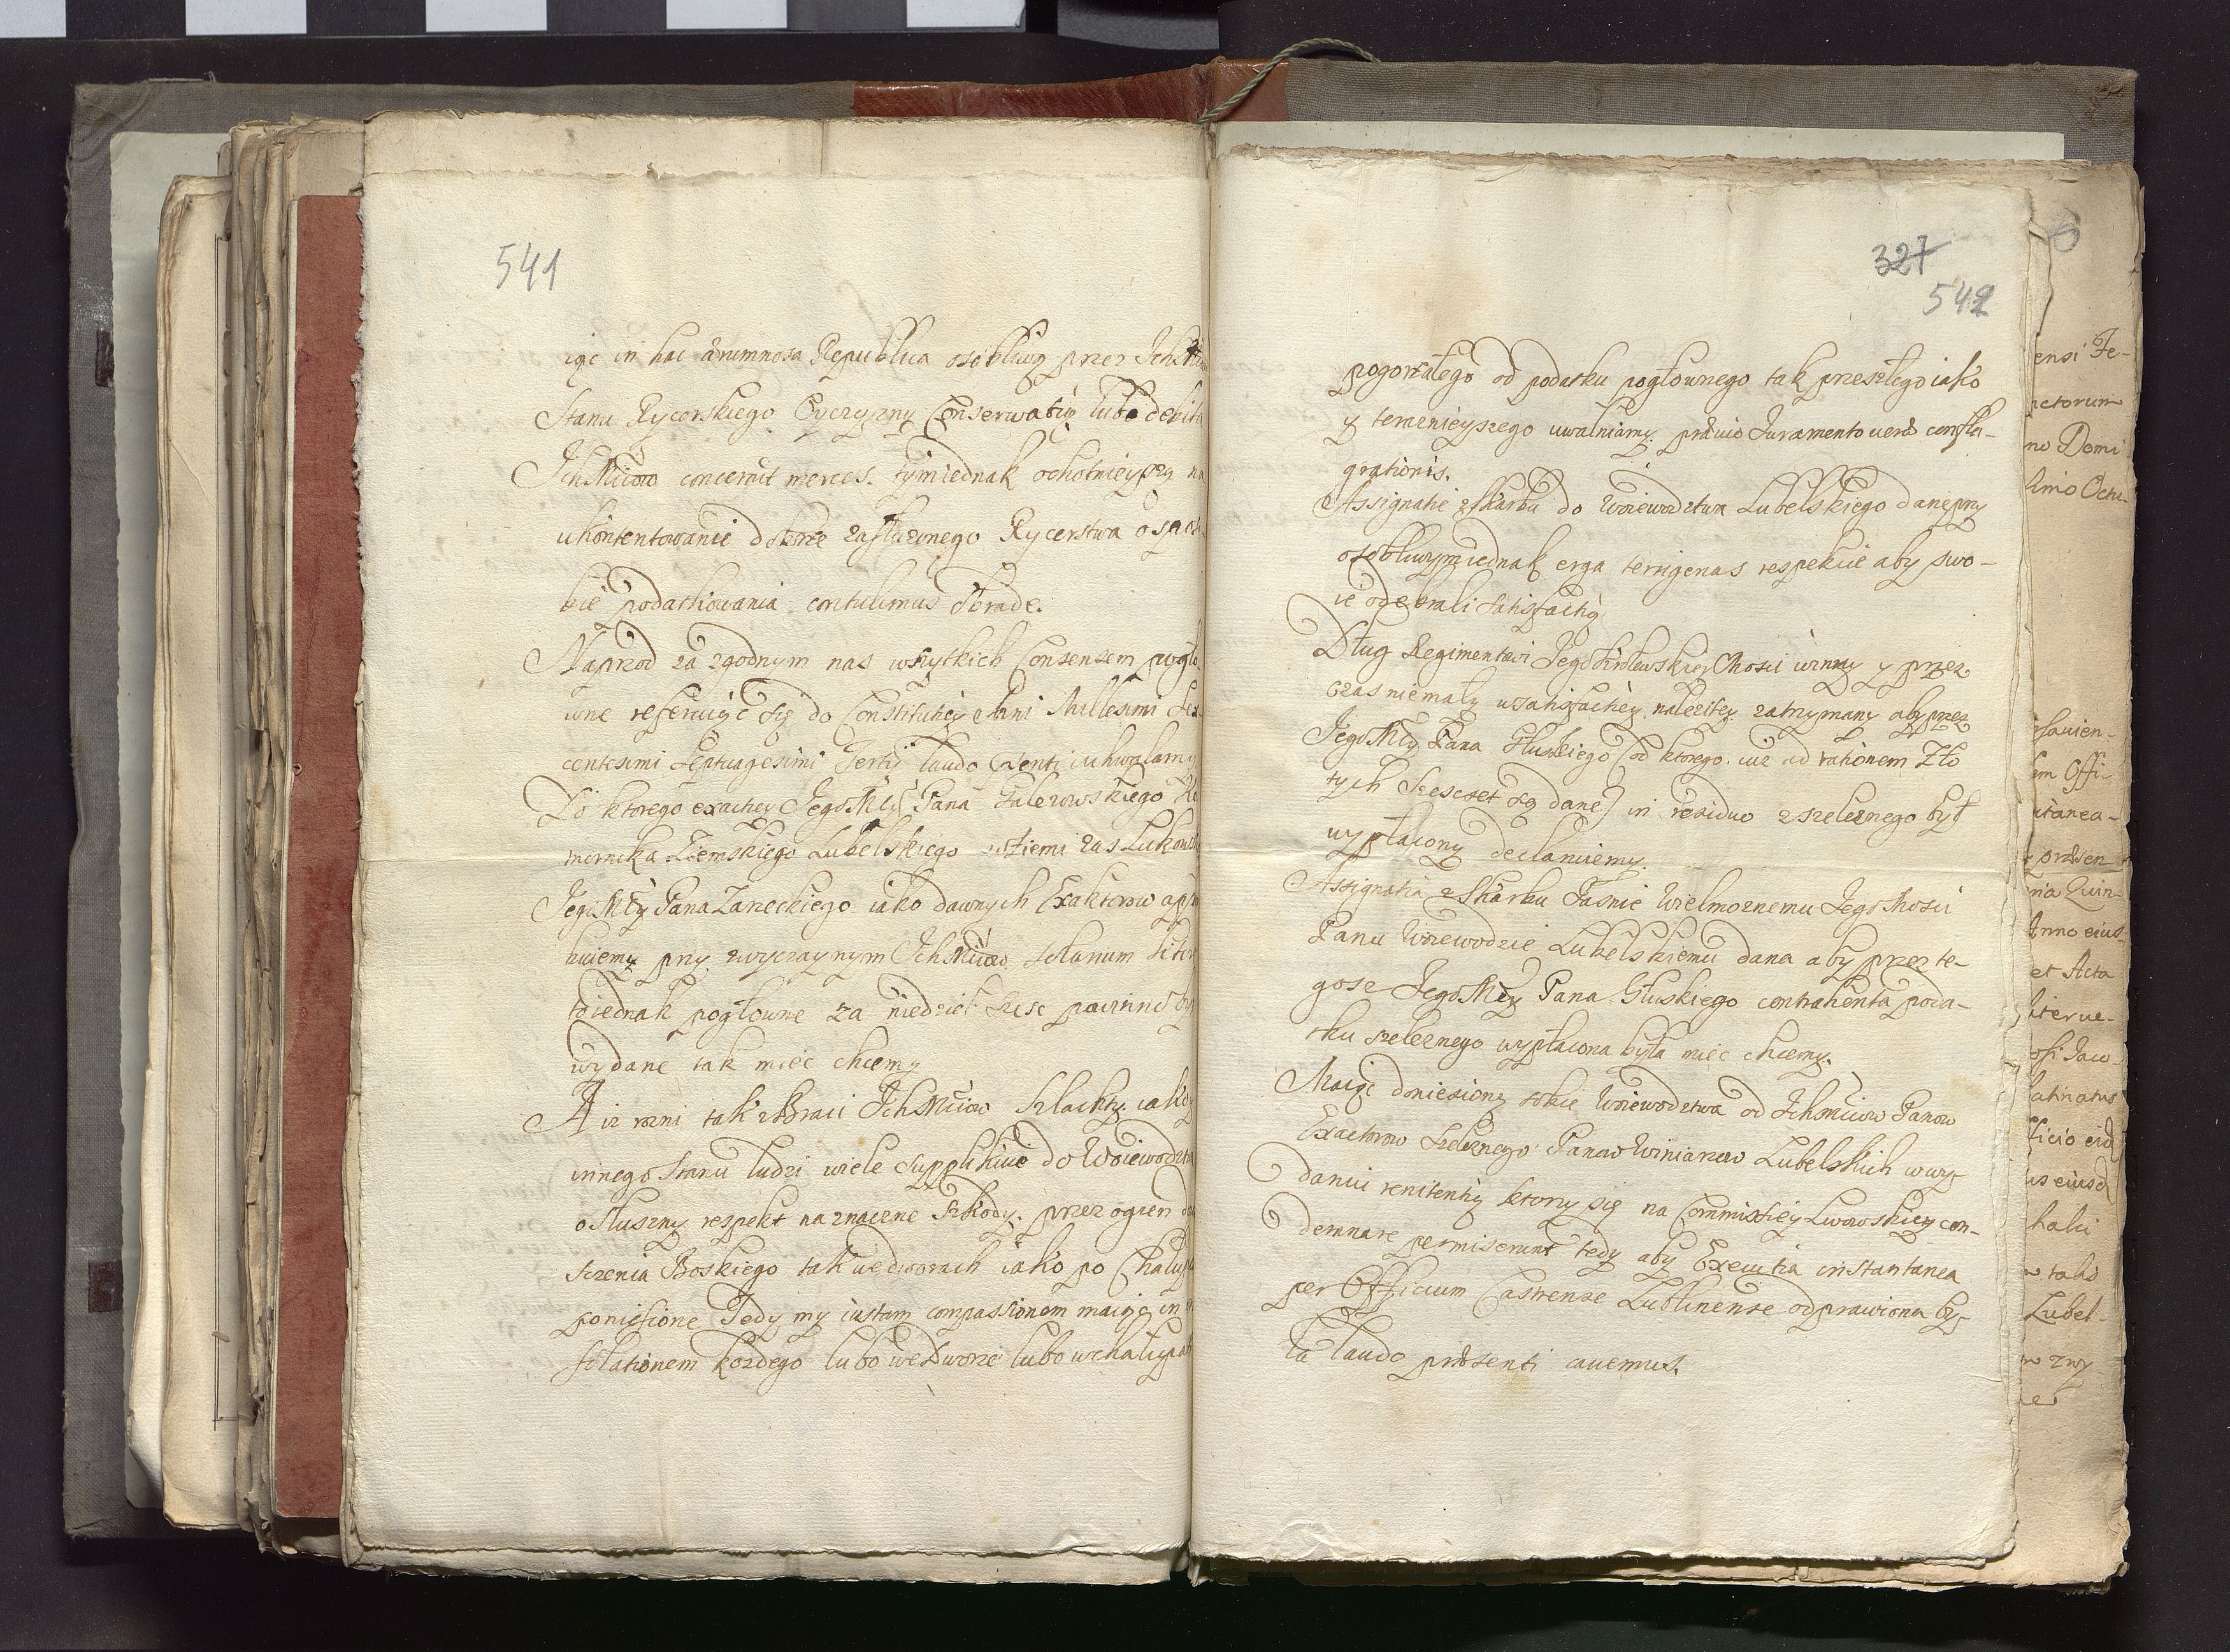 541
iąc in hac ærumnosa Republica osobliwą przez Ich
Stanu Rycerskiego Oyczyzny Conserwatią lubo debita
IchMciow concernit merces. tym iednak ochotnieyszą na
ukontentowanie dobrze zasłuzonego Rycerstwa o sposo
bie podatkowania contulimus
Naprzod za zgodnym nas wszytkich Consensem pogło
wne referuiąc się do Constitutiey Anni Millesimi Sex
centesimi Septuagesimi Tertij laudo præsenti uchwalamy
Do ktorego exactiey JegoMći Pana Galezowskiego Ko
mornika Ziemskiego Lubelskiego w Ziemi zas Lukowsk
JegoMći Pana Zareckiego iako dawnych Exaktorow appro
buiemy przy zwyczaynym IchMciow
to iednak pogłowne za niedziel szesc powinno by
wydane tak miec chcemy
A iz rozni tak z Braci IchMciow Szlachty iako y
innego Stanu ludzi wiele supplikuie do Woiewodztwa
o słuszny respekt na znaczne szkody przez ogien do
sczenia Boskiego tak we dworach iako po Chałup
poniesione Tedy my iustam compassionem maiąc in
solationem kozdego lubo we dworze lubo w chałupa
327
542
pogorzałego od podatku pogłownego tak przeszłego iako
y teraznieyszego uwalniamy prævio Juramento veræ confla-
grationis.
Assignatie z Skarbu do Woiewodztwa Lubelskiego dane przy
osobliwym iednak erga terrigenas respekcie aby swo-
ie odebrali satisfactią
Dług Regimentowi Jego Krolewskiey Mosci winny y przez
czas niemały w satisfactiey nalezitey zatrzymany aby przez
JegoMći Pana Głuskiego (od ktorego iuz ad rationem Zło
tych Szescset są dane) in residuo z szelęznego był
wypłacony declaruiemy.
Assignatia z Skarbu Jasnie Wielmoznemu Jego Mosci
Panu Woiewodzie Lubelskiemu dana aby przez te-
gosz JegoMći Pana Głuskiego contrahenta poda-
tku szelęznego wypłacona była miec chcemy.
Maiąc doniesioną sobie Woiewodztwa od IchMciow Panow
Exactorow Szelęznego Panow Winiarzow Lubelskich w wy-
daniu renitentią ktorzy się na Commissiey Lwowskiey con-
demnare permiserunt tedy aby Executia instantanea
per Officium Castrense Lublinense odprawiona by-
ła laudo præsenti cavemus.
ensi Fe-
no Domi
et Acta
Lubel-